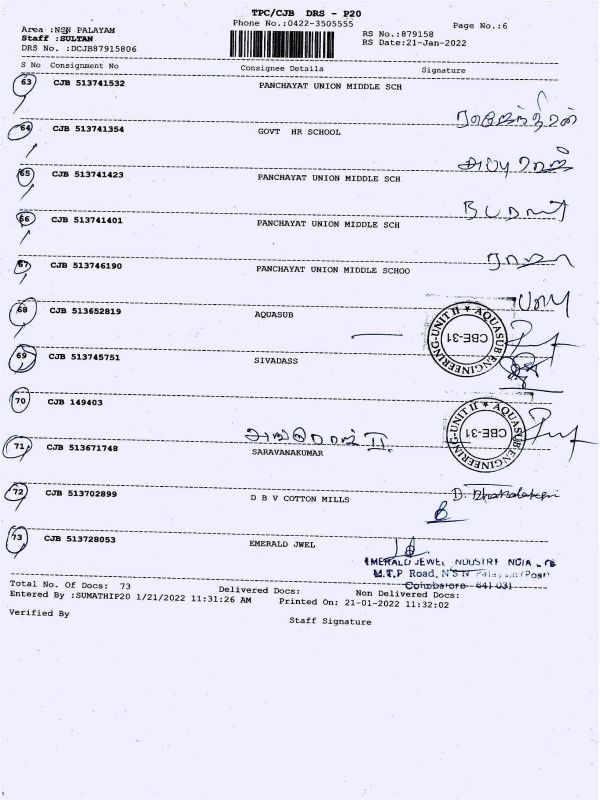 TPC/CJB DRS - P20
Phone No.:0422-3505555
Page No.:6
Area :NSN PALAYAM
Staff :SULTAN
DRS No. :DCJB87915806
RS No.:879158
RS Date:21-Jan-2022
S No Consignment No Consignee Details Signature
63 CJB 513741532 PANCHAYAT UNION MIDDLE SCH
64 CJB 513741354 GOVT HR SCHOOL
65 CJB 513741423 PANCHAYAT UNION MIDDLE SCH
66 CJB 513741401 PANCHAYAT UNION MIDDLE SCH
67 CJB 513746190 PANCHAYAT UNION MIDDLE SCHOO
68 CJB 513652819 AQUASUB
AQUASUB ENGINEERING-UNIT II ★
CBE-31
69 CJB 513745751 SIVADASS
70 CJB 149403
AQUASUB ENGINEERING-UNIT II ★
CBE-31
71 CJB 513671748 SARAVANAKUMAR
72 CJB 513702899 D B V COTTON MILLS
73 CJB 513728053 EMERALD JWEL
EMERALD JEWEL
M.T.P Road, NSN (Post)
Coimbatore 641 031
Total No. Of Docs: 73 Delivered Docs: Non Delivered Docs:
Entered By :SUMATHIP20 1/21/2022 11:31:26 AM Printed On: 21-01-2022 11:32:02
Verified By
Staff Signature